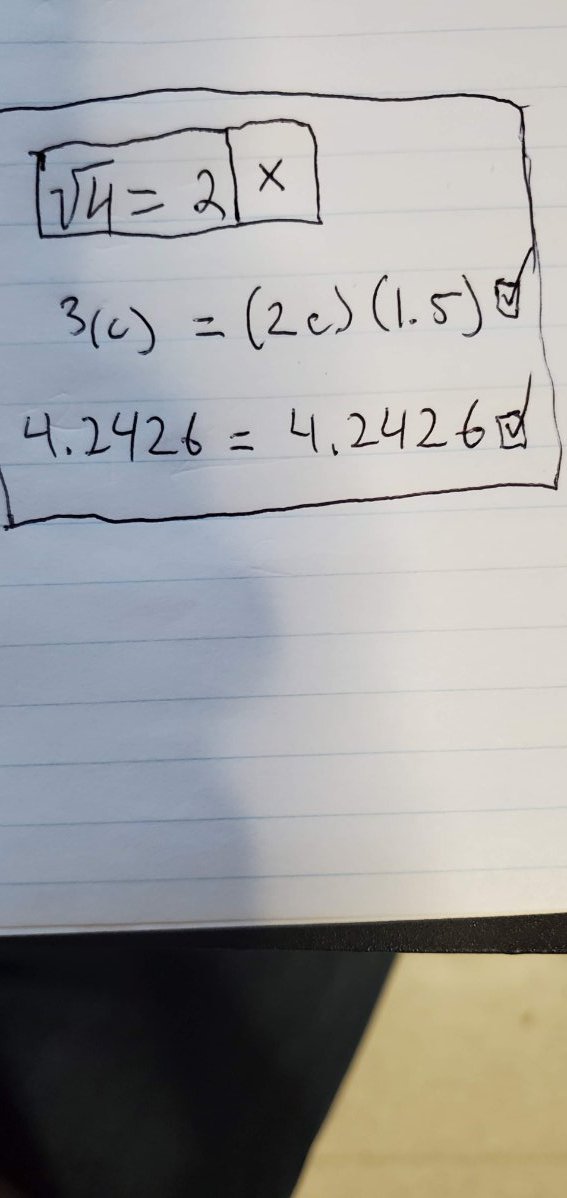 √4 = 2 x
3(c) = (2c)(1.5) ☑
4.2426 = 4.2426 ☑